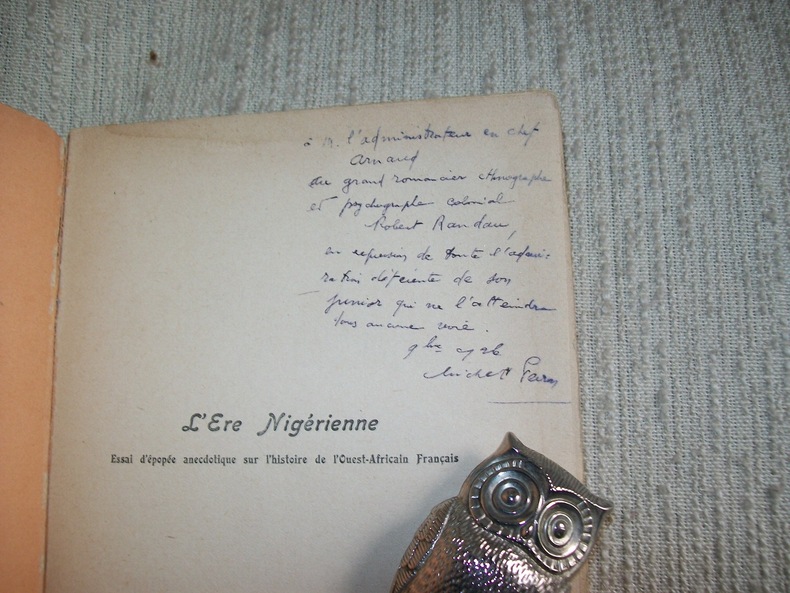 à M. l'administrateur en chef
Arnaud
au grand romancier ethnographe
et psychographe colonial
Robert Randau,
en expression de toute l'admi-
ration déférente de son
junior qui ne l'atteindra
sous aucune
9bre 1926
Michel
L'Ere Nigérienne
Essai d'épopée anecdotique sur l'histoire de l'Ouest-Africain Français